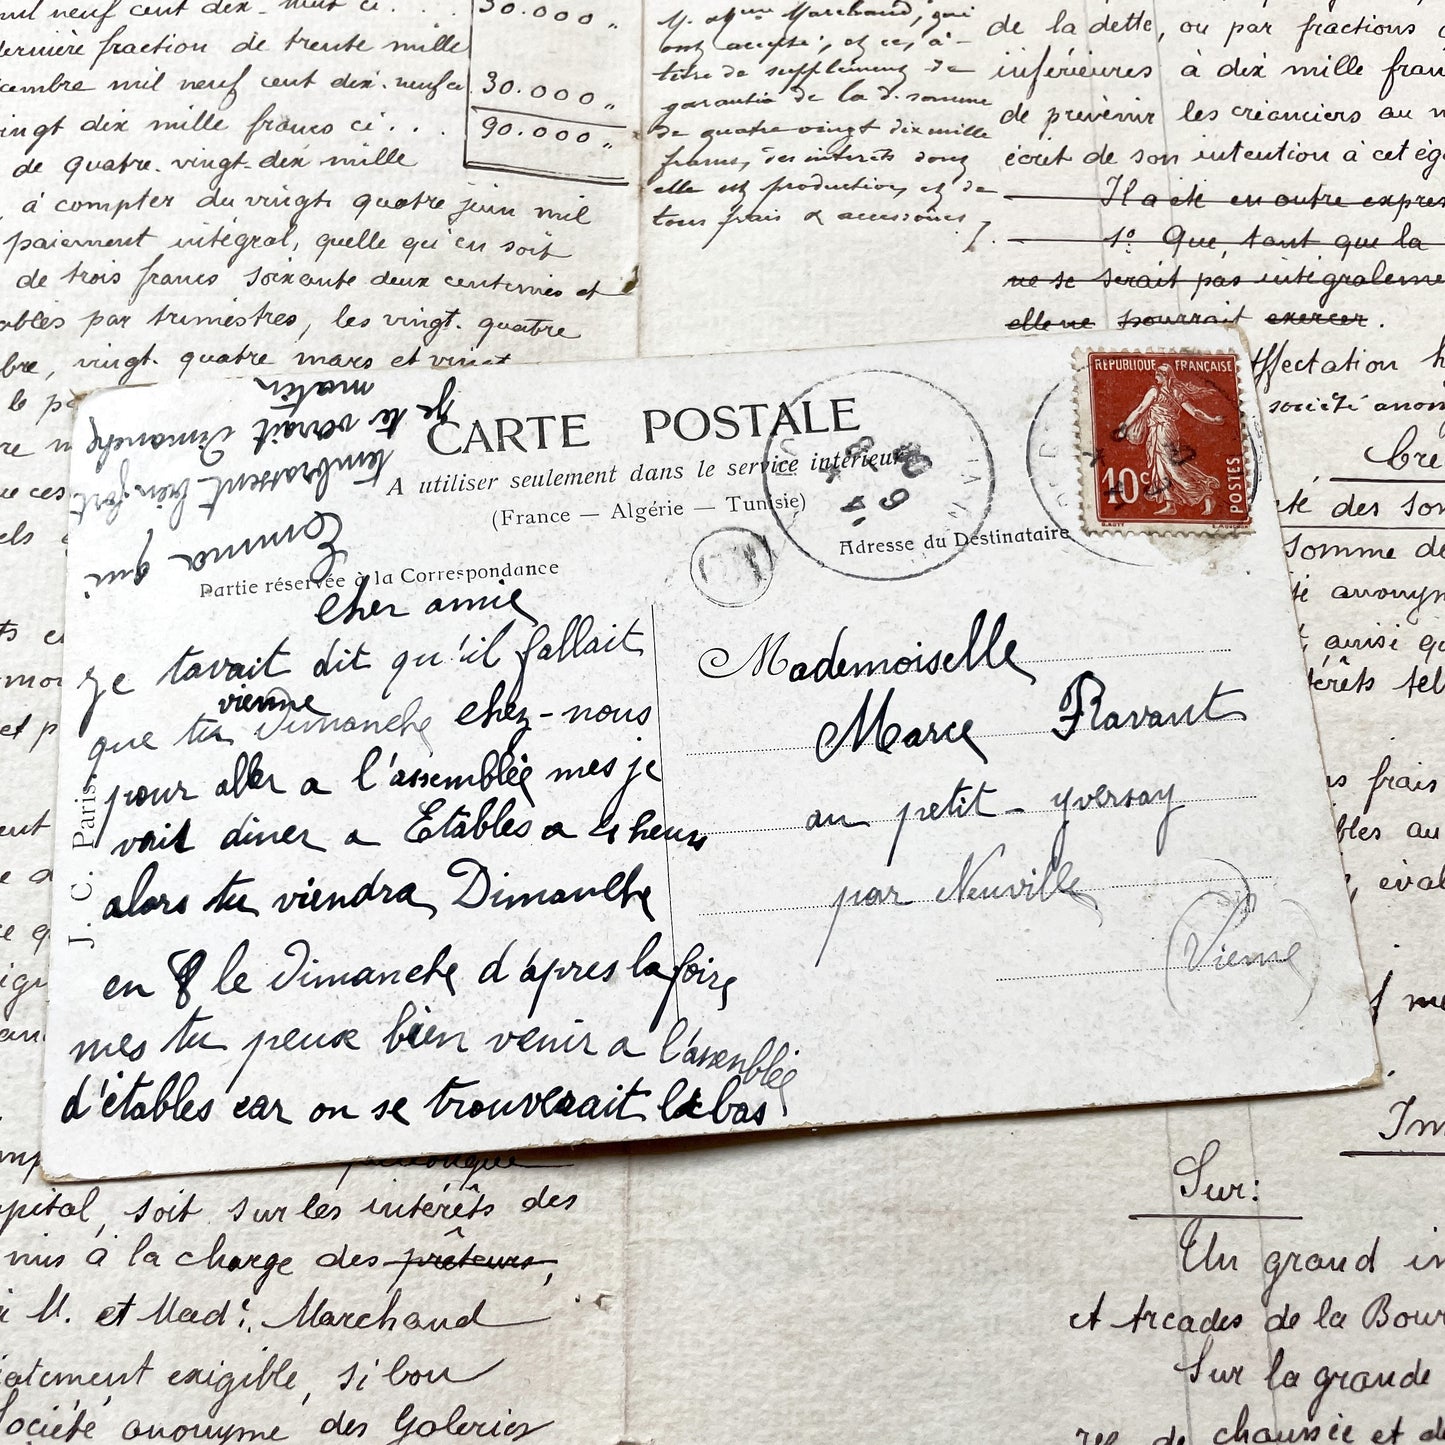 mil neuf cent dix-neuf ci . . . 30.000 "
dernière fraction de trente mille
cembre mil neuf cent dix-neuf ci 30.000 "
ingt dix mille francs ci . . . 90.000 "
de quatre-vingt-dix mille
, à compter du vingt quatre juin mil
paiement intégral, quelle qu'en soit
de trois francs soixante deux centimes et
ables par trimestres, les vingt-quatre
bre, vingt-quatre mars et vingt
M. et Mme Marchand, qui
ont accepté, et ce, à
titre de supplément de
garantie de la d. somme
de quatre vingt dix mille
francs, des intérêts dont
elle est productive, et de
tous frais & accessoires
de la dette, ou par fractions
inférieures à dix mille fran
de prévenir les créanciers au m
écrit de son intention à cet ég
Il a été en outre expres
1° Que, tant que la
ne se serait pas intégraleme
elle ne pourrait exercer.
ffectation h
société anon
Cre
té des Som
Somme de
té anonym
, ainsi qu
térêts tel
s frais
bles au
, éval
CARTE POSTALE
A utiliser seulement dans le service intérieur
(France — Algérie — Tunisie)
Partie réservée à la Correspondance
Adresse du Destinataire
RÉPUBLIQUE FRANÇAISE
10c
POSTES
J. C. Paris.
cher amie
je tavait dit qu'il fallait
vienne
que tu Dimanche chez-nous
pour aller a l'assemblée mes je
vait diner a Etables a 4 heurs
alors tu viendra Dimanche
en 8 le Dimanche d'apres la foire
mes tu peux bien venir a l'assemblée
d'étables car on se trouverait labas
je te verait Dimanche
matin
Emma qui
tembrassent bien fort
Mademoiselle
Marce Ravant
au petit-yversay
par Neuville
(Vienne)
pital, soit sur les intérêts des
mis à la charge des prêteurs,
à M. et Made. Marchand
iatement exigible, si bon
Société anonyme des Galeries
Im
Sur:
Un grand im
et Arcades de la Bour
Sur la grande
rez de chaussée et d